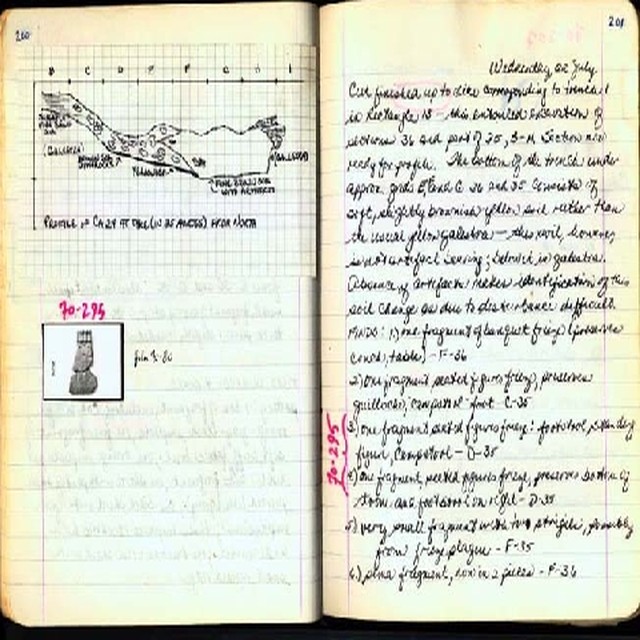 200
B C D E F G H I
(GALESTRA)
(GALESTRA)
PROFILE OF CA 29 PIT FILL (IN 35 AND 36) FROM NORTH
70-295
film 2-20
201
Wednesday 22 July
Cut finished up to dike corresponding to trench 1
in Rectangle 18 - this entailed excavation of
sections 36 and part of 35, B-H. Section now
ready for profile. The bottom of the trench under
approx. grids B and C 36 and 35 consists of
soft, slightly brownish yellow soil rather than
the usual yellow galestra - this soil, however,
is not artifact bearing; below it is galestra.
Absence of artifacts makes identification of this
soil change as due to disturbance difficult.
FINDS: 1) one fragment of banquet frieze (preserves
couch, table) - F-36
2) one fragment seated figures frieze, preserves
guilloche, campstool foot - C-35
3) one fragment seated figures frieze: footstool, standing
figure, campstool - D-35
4) one fragment, seated figures frieze, preserves bottom of
throne and footstool on right - D-35
70-295
5) very small fragment with two strigils, possibly
from frieze plaque - F-35
6) sima fragment, now in 2 pieces - F-36